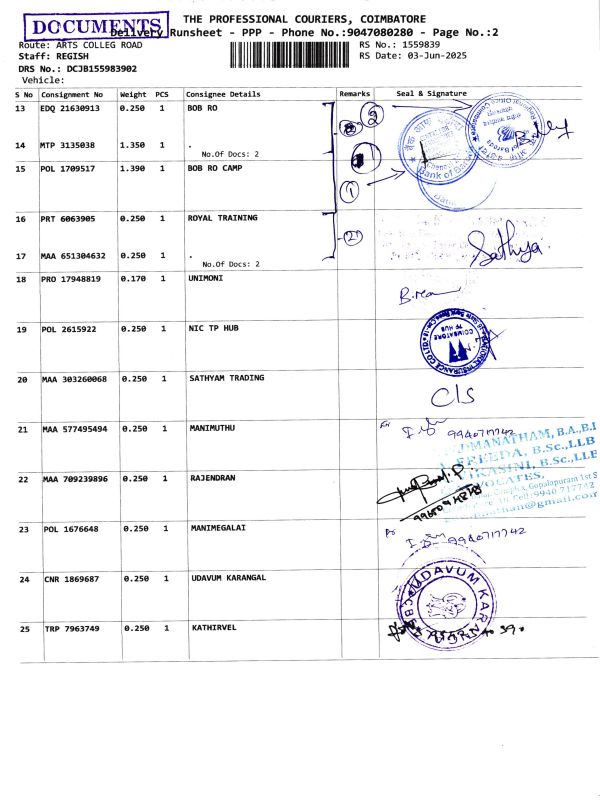 DOCUMENTS
THE PROFESSIONAL COURIERS, COIMBATORE
Delivery Runsheet - PPP - Phone No.:9047080280 - Page No.:2
Route: ARTS COLLEG ROAD
RS No.: 1559839
Staff: REGISH
RS Date: 03-Jun-2025
DRS No.: DCJB155983902
Vehicle:
S No Consignment No Weight PCS Consignee Details Remarks Seal & Signature
13 EDQ 21630913 0.250 1 BOB RO
14 MTP 3135038 1.350 1 .
No.Of Docs: 2
15 POL 1709517 1.390 1 BOB RO CAMP
16 PRT 6063905 0.250 1 ROYAL TRAINING
Sathya
17 MAA 651304632 0.250 1 .
No.Of Docs: 2
18 PRO 17948819 0.170 1 UNIMONI
19 POL 2615922 0.250 1 NIC TP HUB
COIMBATORE
TP HUB
20 MAA 303260068 0.250 1 SATHYAM TRADING
CIS
21 MAA 577495494 0.250 1 MANIMUTHU
9940717742
22 MAA 709239896 0.250 1 RAJENDRAN
B.Sc., LLB
23 POL 1676648 0.250 1 MANIMEGALAI
9940717742
24 CNR 1869687 0.250 1 UDAVUM KARANGAL
UDAVUM KARA
25 TRP 7963749 0.250 1 KATHIRVEL